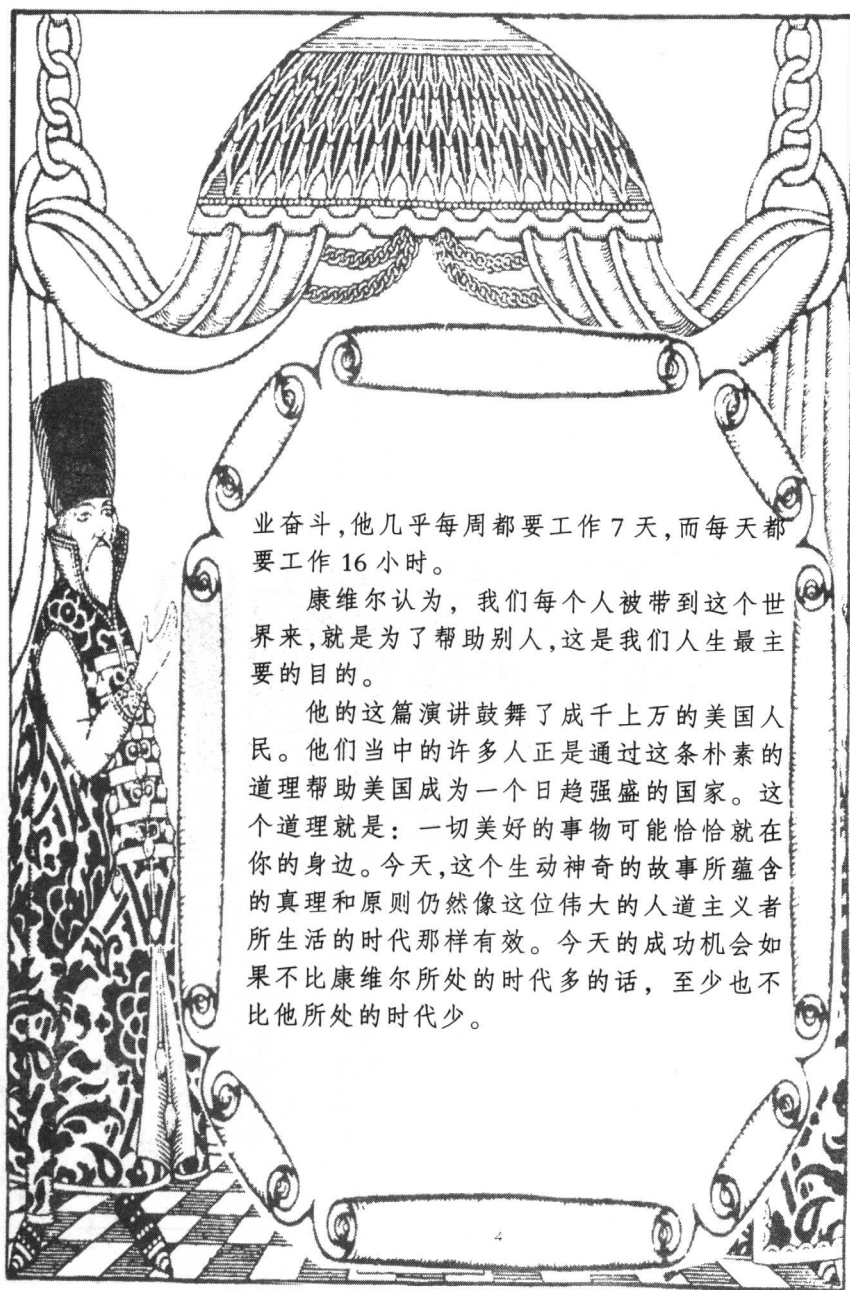 业奋斗,他几乎每周都要工作 7 天,而每天都
要工作 16 小时。
康维尔认为，我们每个人被带到这个世
界来,就是为了帮助别人,这是我们人生最主
要的目的。
他的这篇演讲鼓舞了成千上万的美国人
民。他们当中的许多人正是通过这条朴素的
道理帮助美国成为一个日趋强盛的国家。这
个道理就是：一切美好的事物可能恰恰就在
你的身边。今天,这个生动神奇的故事所蕴含
的真理和原则仍然像这位伟大的人道主义者
所生活的时代那样有效。今天的成功机会如
果不比康维尔所处的时代多的话，至少也不
比他所处的时代少。
4